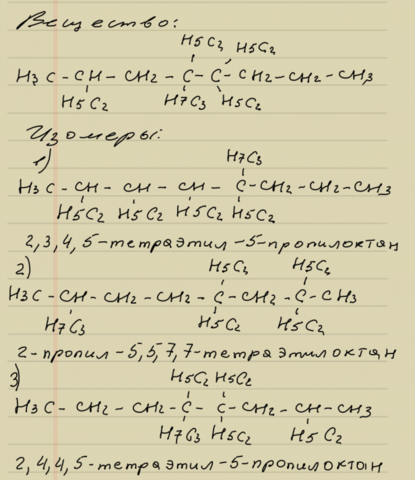 Вещество:
H5C2 H5C2
H3C - CH - CH2 - C - C - CH2 - CH2 - CH3
H5C2 H7C3 H5C2
Изомеры:
1)
H7C3
H3C - CH - CH - CH - C - CH2 - CH2 - CH3
H5C2 H5C2 H5C2 H5C2
2,3,4,5-тетраэтил-5-пропилоктан
2)
H5C2 H5C2
H3C - CH - CH2 - CH2 - C - CH2 - C - CH3
H7C3 H5C2 H5C2
2-пропил-5,5,7,7-тетраэтилоктан
3)
H5C2 H5C2
H3C - CH2 - CH2 - C - C - CH2 - CH - CH3
H7C3 H5C2 H5C2
2,4,4,5-тетраэтил-5-пропилоктан